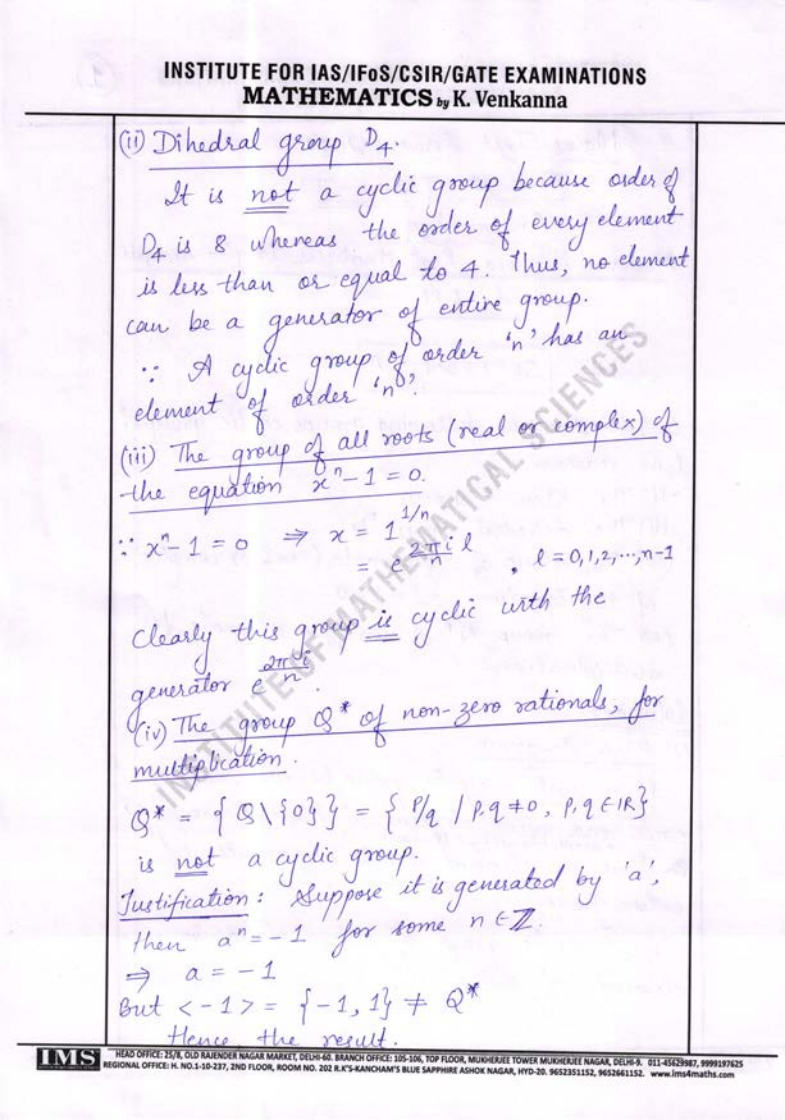 INSTITUTE FOR IAS/IFoS/CSIR/GATE EXAMINATIONS
MATHEMATICS by K. Venkanna
(ii) Dihedral group D₄.
It is not a cyclic group because order of
D₄ is 8 whereas the order of every element
is less than or equal to 4. Thus, no element
can be a generator of entire group.
∵ A cyclic group of order 'n' has an
element of order 'n'.
(iii) The group of all roots (real or complex) of
the equation xⁿ-1 = 0.
∵ xⁿ-1 = 0 ⇒ x = 1^{1/n}
= e^{\frac{2πi}{n} l} , l = 0,1,2,...,n-1
Clearly this group is cyclic with the
generator e^{\frac{2πi}{n}}.
(iv) The group Q* of non-zero rationals, for
multiplication.
Q* = {Q\{0}} = {p/q / p.q ≠ 0, p,q ∈ IR}
is not a cyclic group.
Justification: Suppose it is generated by 'a',
then aⁿ = -1 for some n ∈ ℤ.
⇒ a = -1
But <-1> = {-1, 1} ≠ Q*
Hence the result.
INSTITUTE OF MATHEMATICAL SCIENCES
IMS
HEAD OFFICE: 25/8, OLD RAJENDER NAGAR MARKET, DELHI-60. BRANCH OFFICE: 105-106, TOP FLOOR, MUKHERJEE TOWER MUKHERJEE NAGAR, DELHI-9. 011-45629987, 9999197625
REGIONAL OFFICE: H. NO.1-10-237, 2ND FLOOR, ROOM NO. 202 R.K'S-KANCHAM'S BLUE SAPPHIRE ASHOK NAGAR, HYD-20. 9652351152, 9652661152. www.ims4maths.com